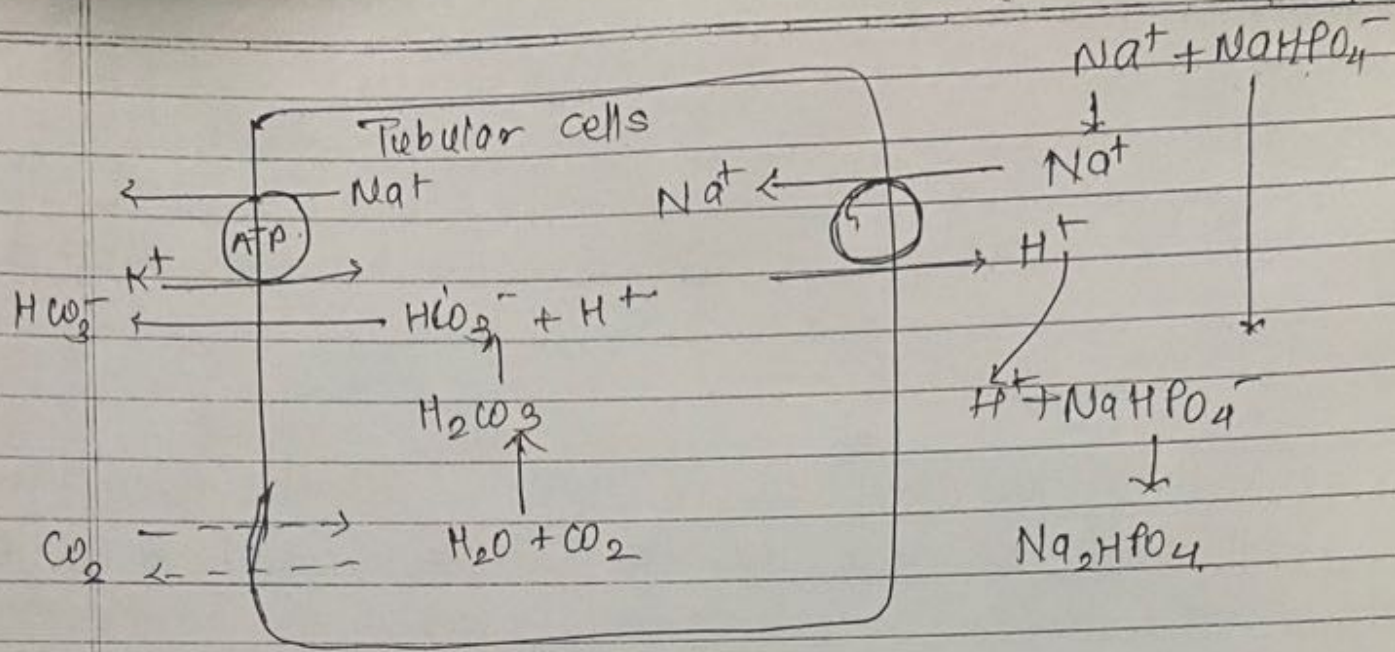 Na⁺ + NaHPO₄⁻
Tubular cells
Na⁺
Na⁺
Na⁺
ATP
H⁺
K⁺
HCO₃⁻
HCO₃⁻ + H⁺
H⁺ + NaHPO₄⁻
H₂CO₃
CO₂
H₂O + CO₂
Na₂HPO₄